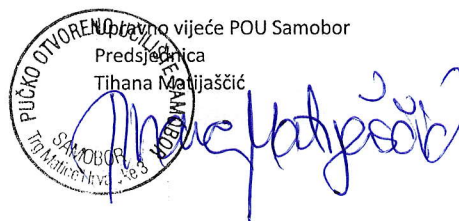 Upravno vijeće POU Samobor
Predsjednica
Tihana Matijaščić
PUČKO OTVORENO UČILIŠTE SAMOBOR
SAMOBOR
Trg Matice Hrvatske 3
Tihana Matijaščić